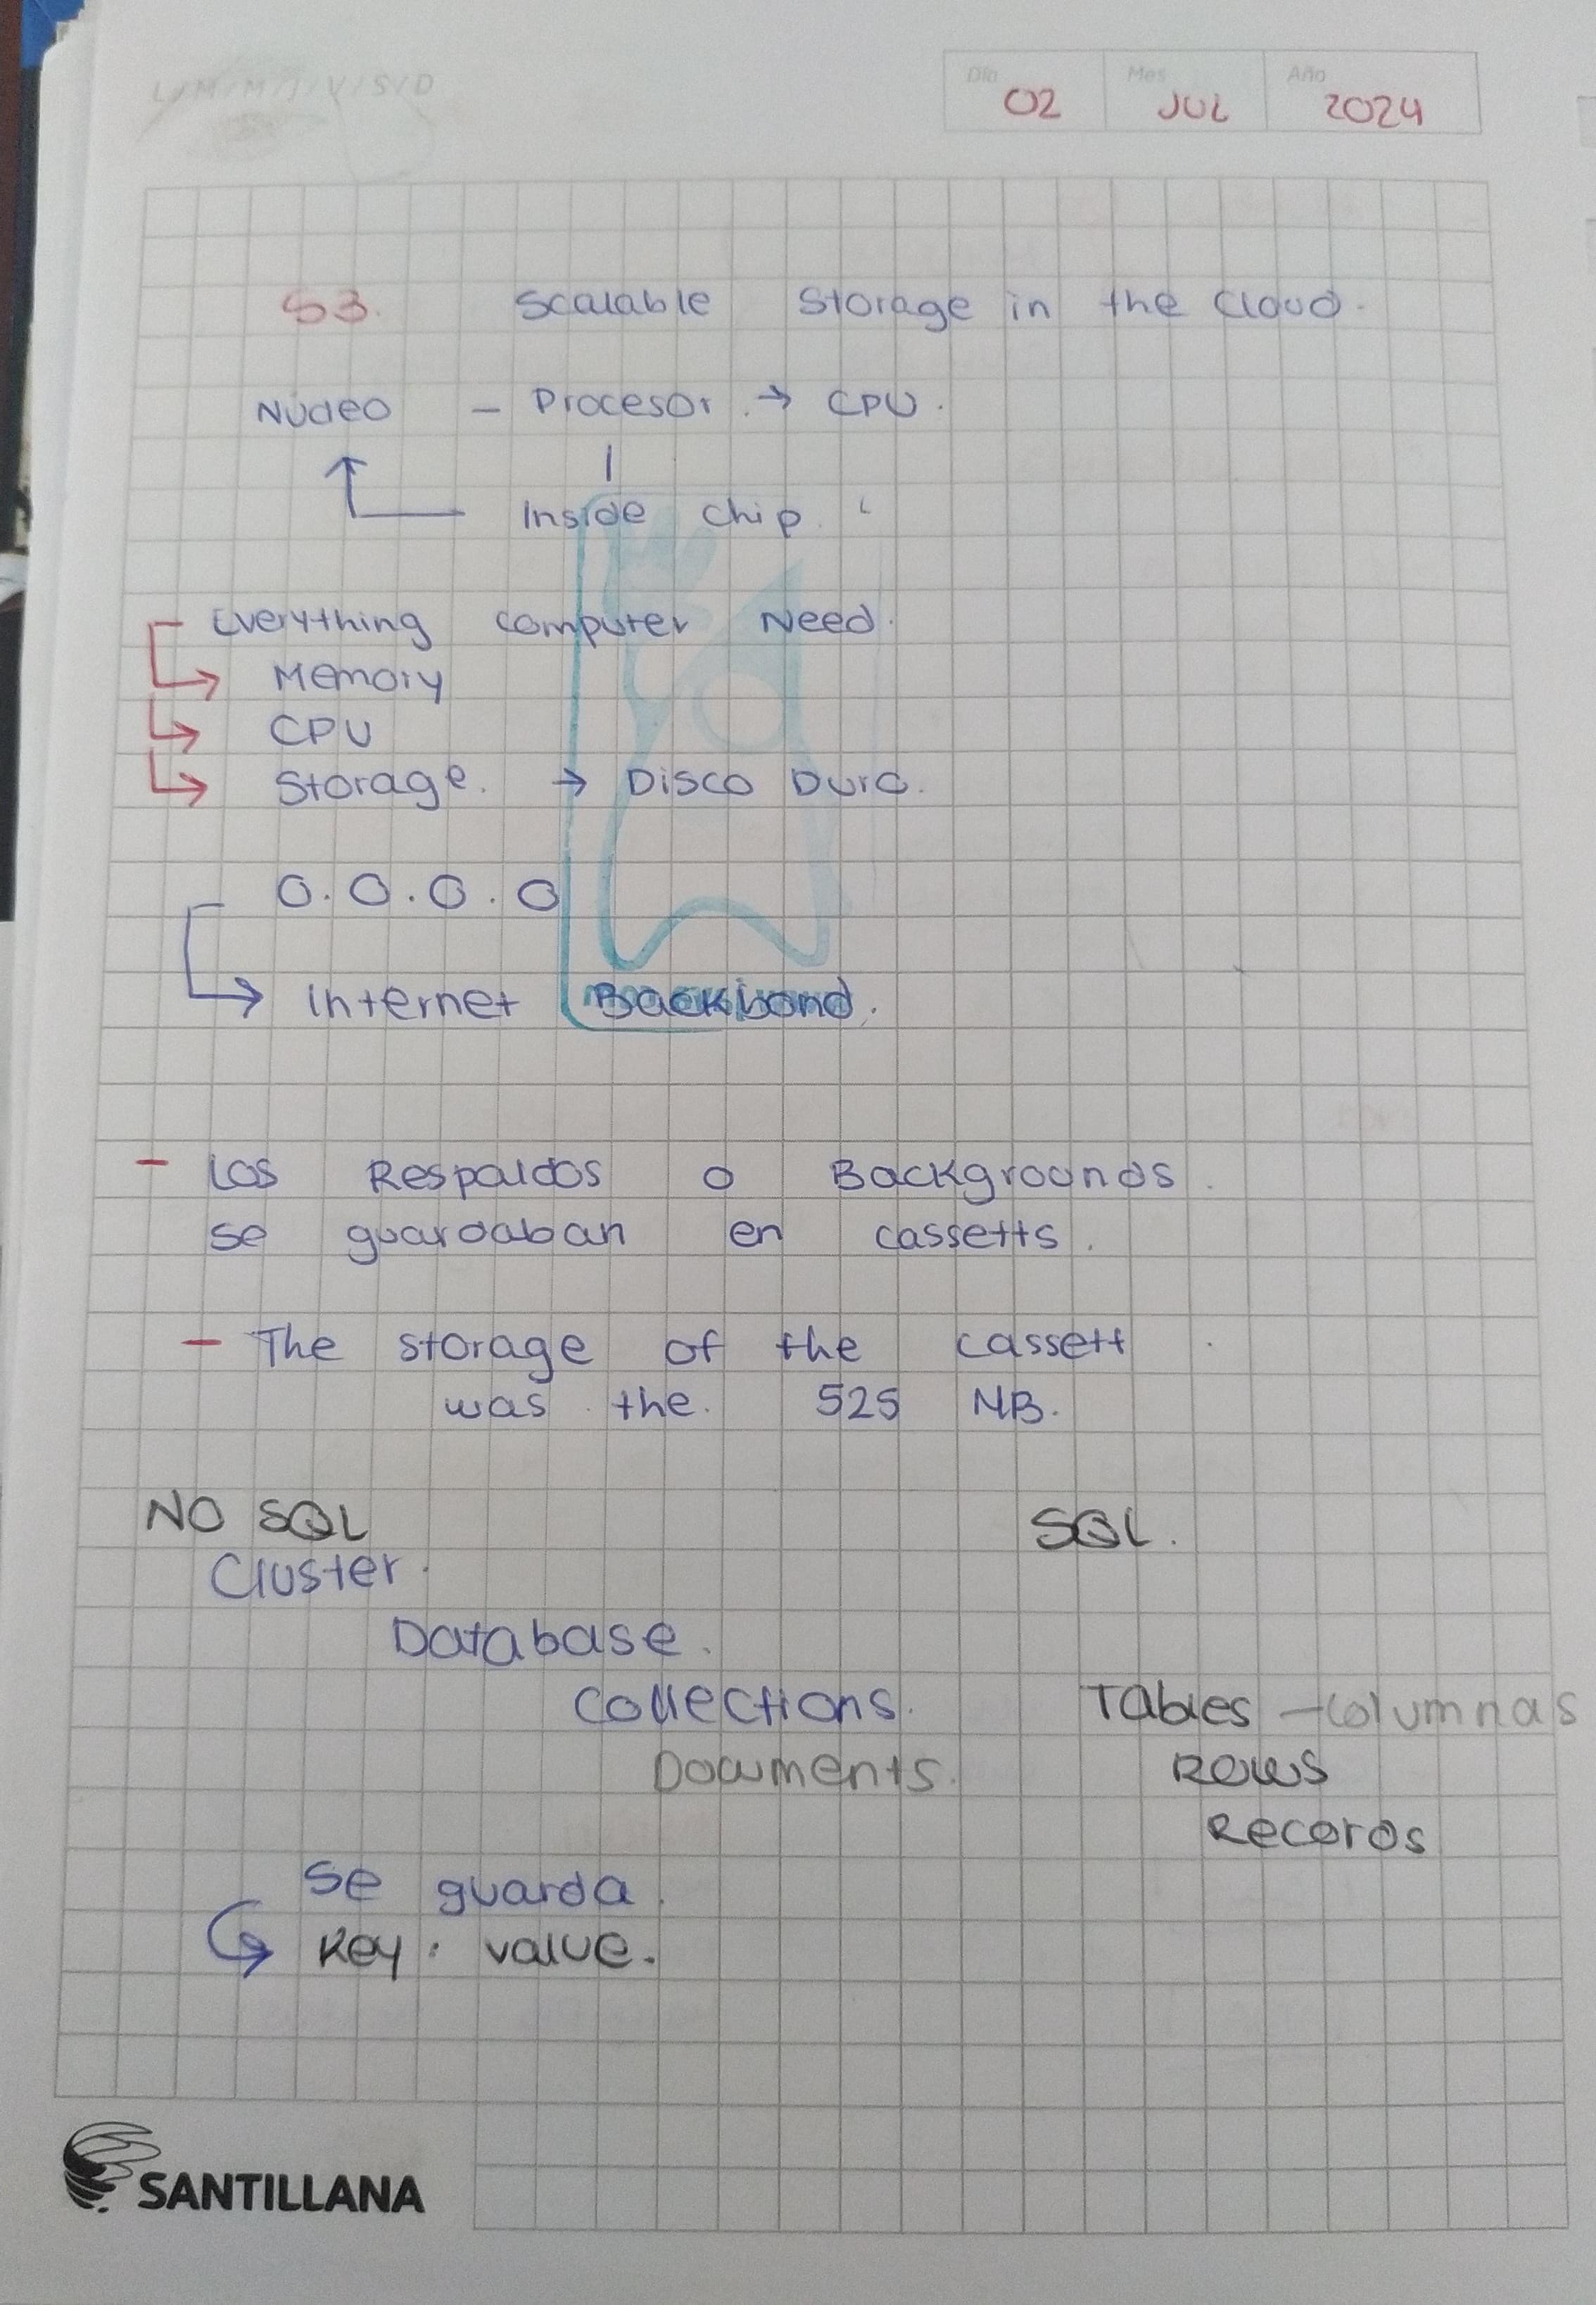 L/M/M/J/V/S/D
Día 02 Mes JUL Año 2024
S3. Scalable Storage in the Cloud.
Núcleo - Procesor. → CPU.
Inside chip.
Everything computer Need.
Memory
CPU
Storage. → Disco Duro.
0.0.0.0
Internet Backbond.
- Los Respaldos o Backgrounds.
se guardaban en cassetts.
- The storage of the cassett
was the. 525 MB.
NO SQL SQL.
Cluster.
Database.
Collections. Tables - Columnas
Documents. Rows
Records
Se guarda.
Key: value.
SANTILLANA